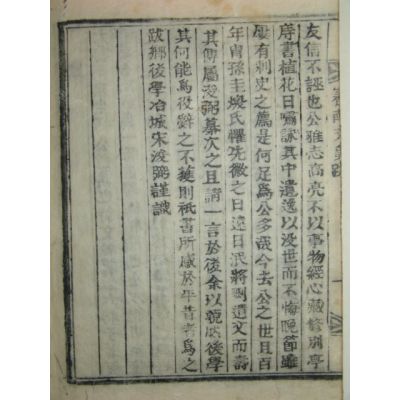 友信不誣也公雅志高亮不以事物經心藏修別亭
庤書植花日嘯詠其中遺逸以没世而不悔晚節雖
有刺史之薦是何足爲公多哉今去公之世且百
年胄孫主燦氏懼先徽之日遠日泯將剞遺文而壽
其傳屬浚弼纂次之且請一言於後余以藐然後學
其何能爲役辭之不獲則秖書所感於平昔者爲之
跋鄕後學冶城宋浚弼謹識